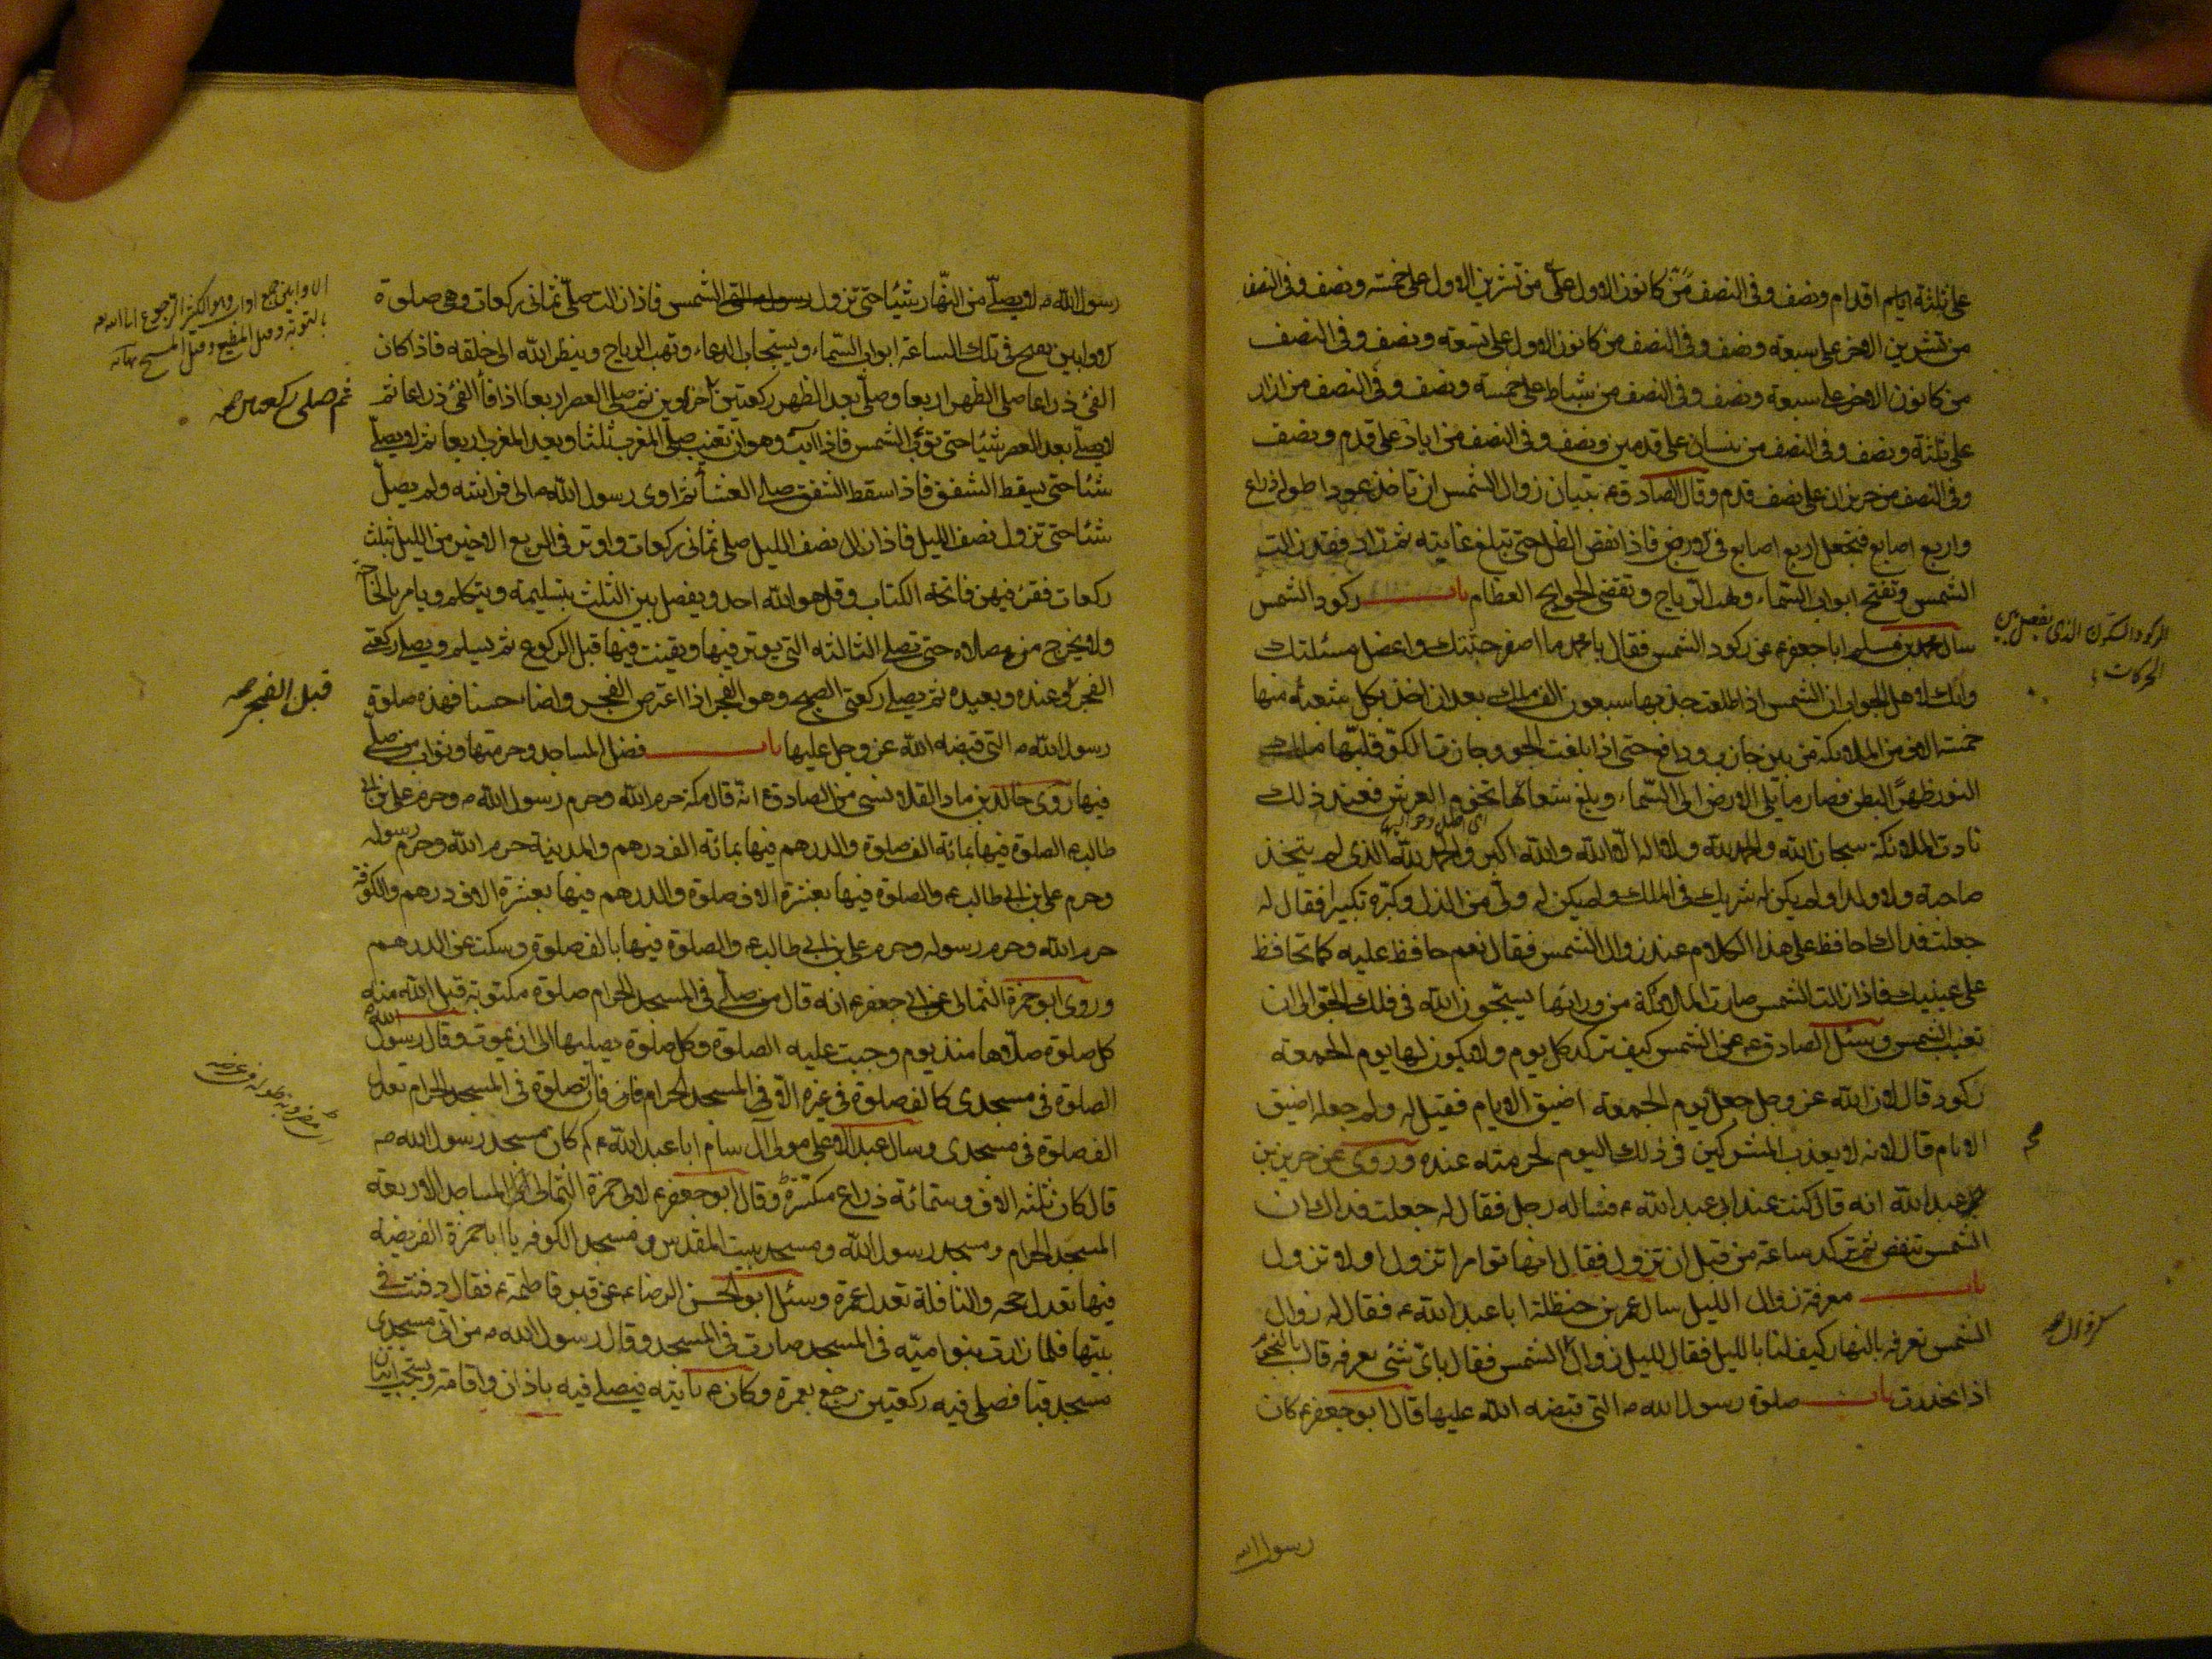 على ثلثة اقدام ونصف وفى النصف من كانون الاول على من تشرين الاول على خمسة ونصف وفى النصف
من تشرين الاخر على سبعة ونصف وفى النصف من كانون الاول على تسعة ونصف وفى النصف
من كانون الاخر على سبعة ونصف وفى النصف من شباط على خمسة ونصف وفى النصف من اذار
على ثلثة ونصف وفى النصف من نيسان على قدمين ونصف وفى النصف من ايار على قدم ونصف
وفى النصف من حزيران على نصف قدم وقال الصادق ع تبيان زوال الشمس ان تاخذ عودا طوله ذراع
واربع اصابع فتجعل اربع اصابع فى الارض فاذا نقص الظل حتى تبلغ غايته ثم زاد فقد زالت
الشمس وتفتح ابواب السماء وتهب الرياح وتقضى الحوايج العظام باب ركود الشمس
سال محمد بن مسلم ابا جعفر ع عن ركود الشمس فقال يا محمد ما اصغر جثتك واعضل مسئلتك
وانك لاهل للجواب ان الشمس اذا طلعت جذبها سبعون الف ملك بعد ان اخذ بكل شعبة منها
خمسة الاف من الملائكة من بين جاذب ودافع حتى اذا بلغت الجو وجازت الكو قلبها ملك
النور ظهرا لبطن فصار ما يلى الارض الى السماء وبلغ شعاعها تخوم العرش فعند ذلك
نادت الملائكة سبحان الله والحمد لله ولا اله الا الله والله اكبر والحمد لله الذى لم يتخذ
صاحبة ولا ولدا ولم يكن له شريك فى الملك ولم يكن له ولى من الذل وكبره تكبيرا فقال له
جعلت فداك احافظ على هذا الكلام عند زوال الشمس فقال نعم حافظ عليه كما تحافظ
على عينيك فاذا زالت الشمس صارت الملائكة من ورائها يسبحون الله فى فلك الجو الى ان
تغيب الشمس وسئل الصادق ع عن الشمس كيف تركد كل يوم ولا يكون لها يوم الجمعة
ركود قال لان الله عز وجل جعل يوم الجمعة اضيق الايام فقيل له ولم جعله اضيق
الايام قال لانه لا يعذب المشركين فى ذلك اليوم لحرمته عنده وروى عن حريز بن
عبد الله انه قال كنت عند ابى عبد الله ع فساله رجل فقال له جعلت فداك ان
الشمس تنقض ثم تركد ساعة من قبل ان تزول فقال انها تؤامر اتزول او لا تزول
باب معرفة زوال الليل سال عمر بن حنظلة ابا عبد الله ع فقال له زوال
الشمس نعرفه بالنهار كيف لنا بالليل فقال لليل زوال الشمس فقال باى شئ نعرفه قال بالنجوم
اذا انحدرت باب صلوة رسول الله ص التى قبضه الله عليها قال ابو جعفر ع كان
الركود السكون الذى يفصل بين
الحركات
كزوال
رسول الله
رسول الله ص لا يصلى من النهار شيئا حتى تزول الشمس فاذا زالت صلى ثمانى ركعات وهى صلوة
الاوابين تفتح فى تلك الساعة ابواب السماء ويستجاب الدعاء وتهب الرياح وينظر الله الى خلقه فاذا كان
الفئ ذراعا صلى الظهر اربعا وصلى بعد الظهر ركعتين اخراوين ثم صلى العصر اربعا اذا فاء الفئ ذراعا ثم
لا يصلى بعد العصر شيئا حتى تؤب الشمس فاذا ابت وهو ان تغيب صلى المغرب ثلثا وبعد المغرب اربعا ثم لا يصلى
شئا حتى يسقط الشفق فاذا سقط الشفق صلى العشاء ثم اوى رسول الله ص الى فراشه ولم يصل
شئا حتى تزول نصف الليل فاذا زال نصف الليل صلى ثمانى ركعات واوتر فى الربع الاخير من الليل بثلث
ركعات فقرء فيهن فاتحة الكتاب وقل هو الله احد ويفصل بين الثلث بتسليمة ويتكلم ويامر بالحاجة
ولا يخرج من مصلاه حتى تصلى الثالثة التى يوتر فيها ويقنت فيها قبل الركوع ثم يسلم ويصلى ركعتى
الفجر وعنده وبعيده ثم يصلى ركعتى الصبح وهو الفجر اذا اعترض الفجر واضاء حسنا فهذه صلوة
رسول الله ص التى قبضه الله عز وجل عليها باب فضل المساجد وحرمتها وثواب من صلى
فيها روى خالد بن ماد القلانسى عن الصادق ع انه قال مكة حرم الله وحرم رسول الله ص وحرم على بن ابى
طالب ع الصلوة فيها بمائة الف صلوة والدرهم فيها بمائة الف درهم والمدينة حرم الله وحرم رسوله
وحرم على بن ابى طالب ع والصلوة فيها بعشرة الاف صلوة والدرهم فيها بعشرة الاف درهم والكوفة
حرم الله وحرم رسوله وحرم على بن ابى طالب ع والصلوة فيها بالف صلوة وسكت عن الدرهم
وروى ابو حمزة الثمالى عن ابى جعفر ع انه قال من صلى فى المسجد الحرام صلوة مكتوبة قبل الله منه
كل صلوة صلاها منذ يوم وجبت عليه الصلوة وكل صلوة يصليها الى ان يموت وقال رسول الله
الصلوة فى مسجدى كالف صلوة فى غيره الا فى المسجد الحرام فان صلوة فى المسجد الحرام تعدل
الف صلوة فى مسجدى وسال عبد الاعلى مولى ال سام ابا عبد الله ع كم كان مسجد رسول الله ص
قال كان ثلثة الاف وستمائة ذراع مكسرة وقال ابو جعفر ع لابى حمزة الثمالى المساجد الاربعة
المسجد الحرام ومسجد رسول الله ومسجد بيت المقدس ومسجد الكوفة يا ابا حمزة الفريضة
فيها تعدل حجة والنافلة تعدل عمرة وسئل ابو الحسن الرضا ع عن قبر فاطمة ع فقال دفنت فى
بيتها فلما زادت بنو امية فى المسجد صارت فى المسجد وقال رسول الله ص من اتى مسجدى
مسجد قبا فصلى فيه ركعتين رجع بعمرة وكان ع ياتيه فيصلى فيه باذان واقامة ويستحب اتيان
ثم صلى ركعتين صح
قبل الفجر صح